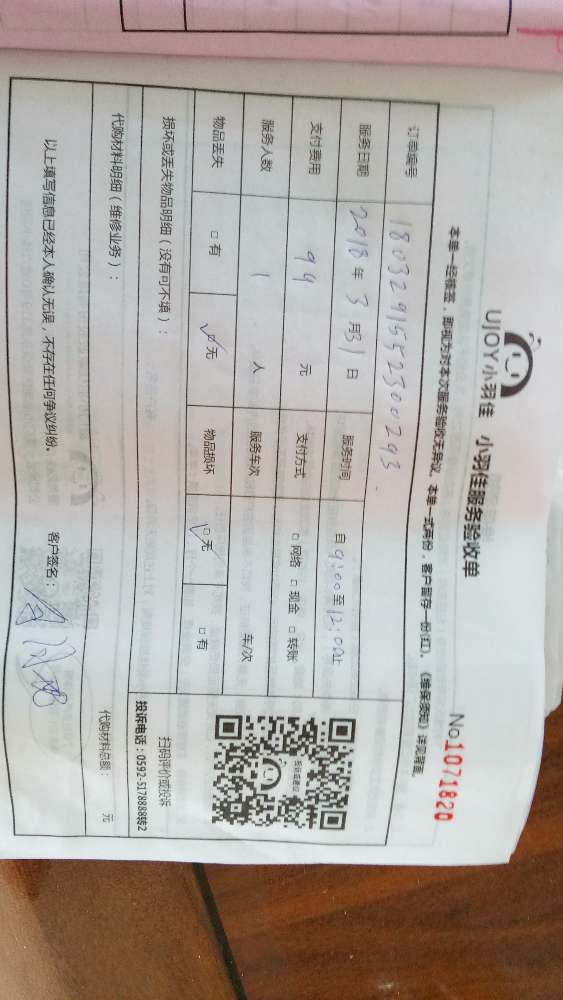 UJOY小羽佳 小羽佳服务验收单 No1071820
本单一经核签，即视为对本次服务验收无异议。本单一式两份，客户留存一份(红)。《维保须知》详见背面。
订单编号 1803291552300293
服务日期 2018年3月31日 服务时间 自9:00至12:00止
支付费用 99 元 支付方式 □网络 □现金 □转账
服务人数 1 人 服务车次 车/次
物品丢失 □有 □无 物品损坏 □无 □有
扫码评价或投诉
投诉电话：0592-5178888转2
损坏或丢失物品明细（没有可不填）：
代购材料明细（维修业务）： 代购材料总额： 元
以上填写信息已经本人确认无误，不存在任何争议纠纷。 客户签名：